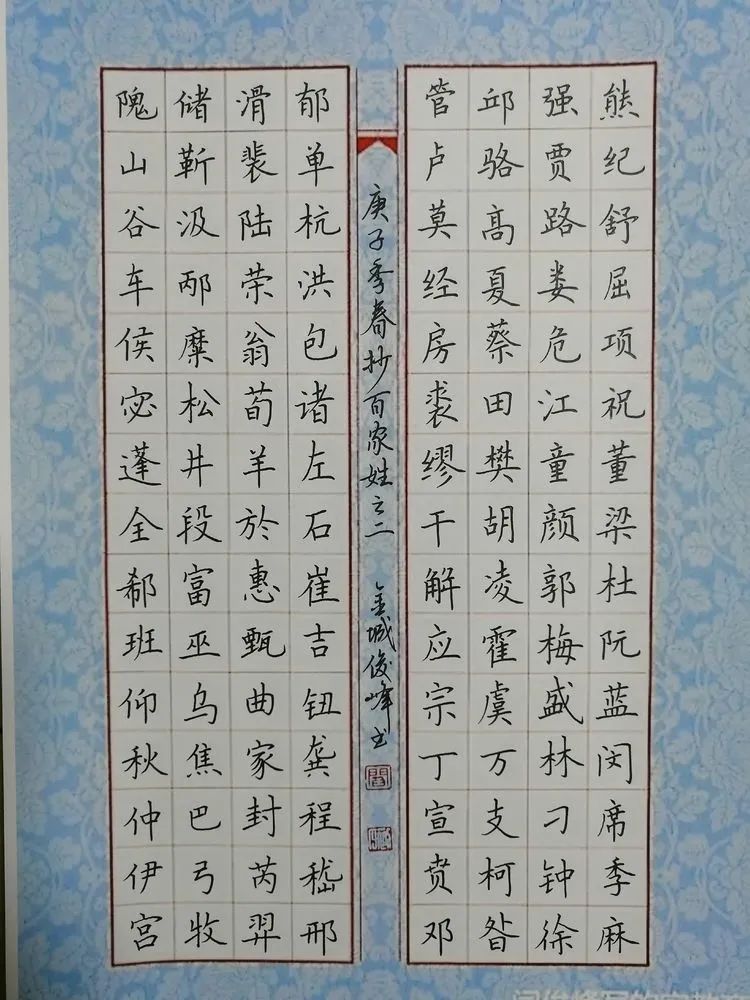 熊纪舒屈项祝董梁杜阮蓝闵席季麻
强贾路娄危江童颜郭梅盛林刁钟徐
邱骆高夏蔡田樊胡凌霍虞万支柯昝
管卢莫经房裘缪干解应宗丁宣贲邓
庚子季春抄百家姓之二 金城俊峰书
郁单杭洪包诸左石崔吉钮龚程嵇邢
滑裴陆荣翁荀羊於惠甄曲家封芮羿
储靳汲邴糜松井段富巫乌焦巴弓牧
隗山谷车侯宓蓬全郗班仰秋仲伊宫